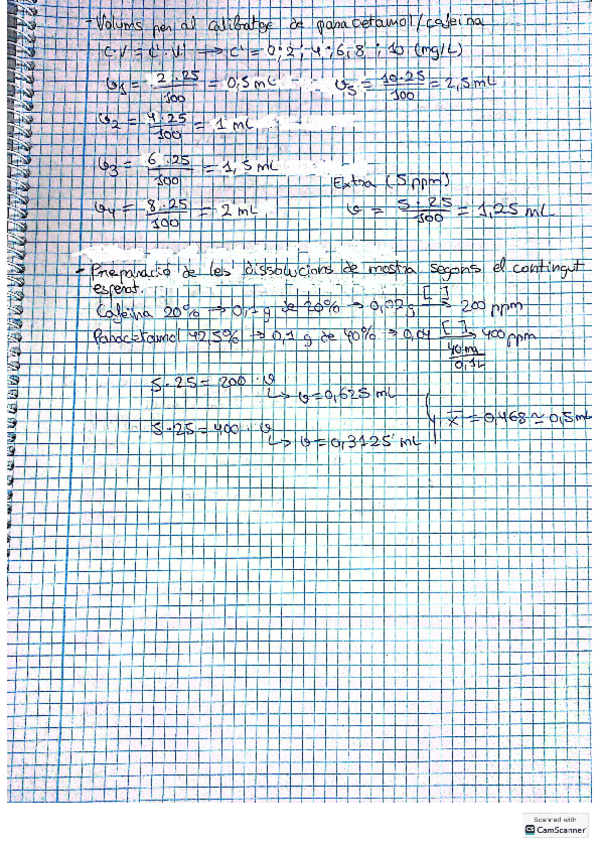 - Volums per al calibratge de paracetamol/cafeïna
C·V = C'·V' → C' = 0; 2; 4; 6; 8; 10 (mg/L)
v1 = 2·25/100 = 0,5 mL v5 = 10·25/100 = 2,5 mL
v2 = 4·25/100 = 1 mL
v3 = 6·25/100 = 1,5 mL
Extra (5 ppm)
v4 = 8·25/100 = 2 mL v = 5·25/100 = 1,25 mL
- Preparació de les dissolucions de mostra segons el contingut
esperat.
Cafeïna 20% → 0,1 g de 20% → 0,02 g [ ]→ 200 ppm
Paracetamol 42,5% → 0,1 g de 40% → 0,04 [ ]→ 400 ppm
40 mg/0,1L
5·25 = 200·v
↳ v = 0,625 mL
x̄ = 0,468 ≃ 0,5 mL
5·25 = 400·v
↳ v = 0,3125 mL
Scanned with
CamScanner